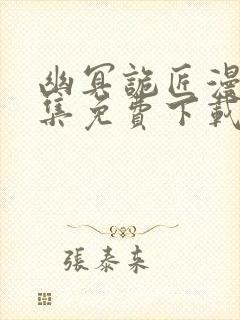 幽冥詭匠漫
集免費下載
張泰来